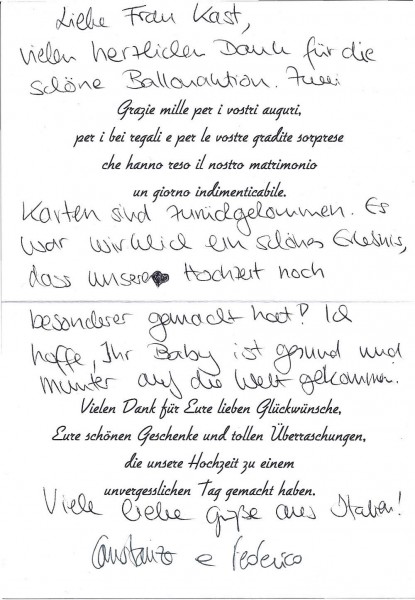 Liebe Frau Kast,
vielen herzlichen Dank für die
schöne Ballonaktion. Zwei
Grazie mille per i vostri auguri,
per i bei regali e per le vostre gradite sorprese
che hanno reso il nostro matrimonio
un giorno indimenticabile.
Karten sind zurückgekommen. Es
war wirklich ein schönes Erlebnis,
dass unsere Hochzeit noch
besonderer gemacht hat! Ich
hoffe, Ihr Baby ist gesund und
munter auf die Welt gekommen.
Vielen Dank für Eure lieben Glückwünsche,
Eure schönen Geschenke und tollen Überraschungen,
die unsere Hochzeit zu einem
unvergesslichen Tag gemacht haben.
Viele liebe Grüße aus Italien!
Constanzo e Federico